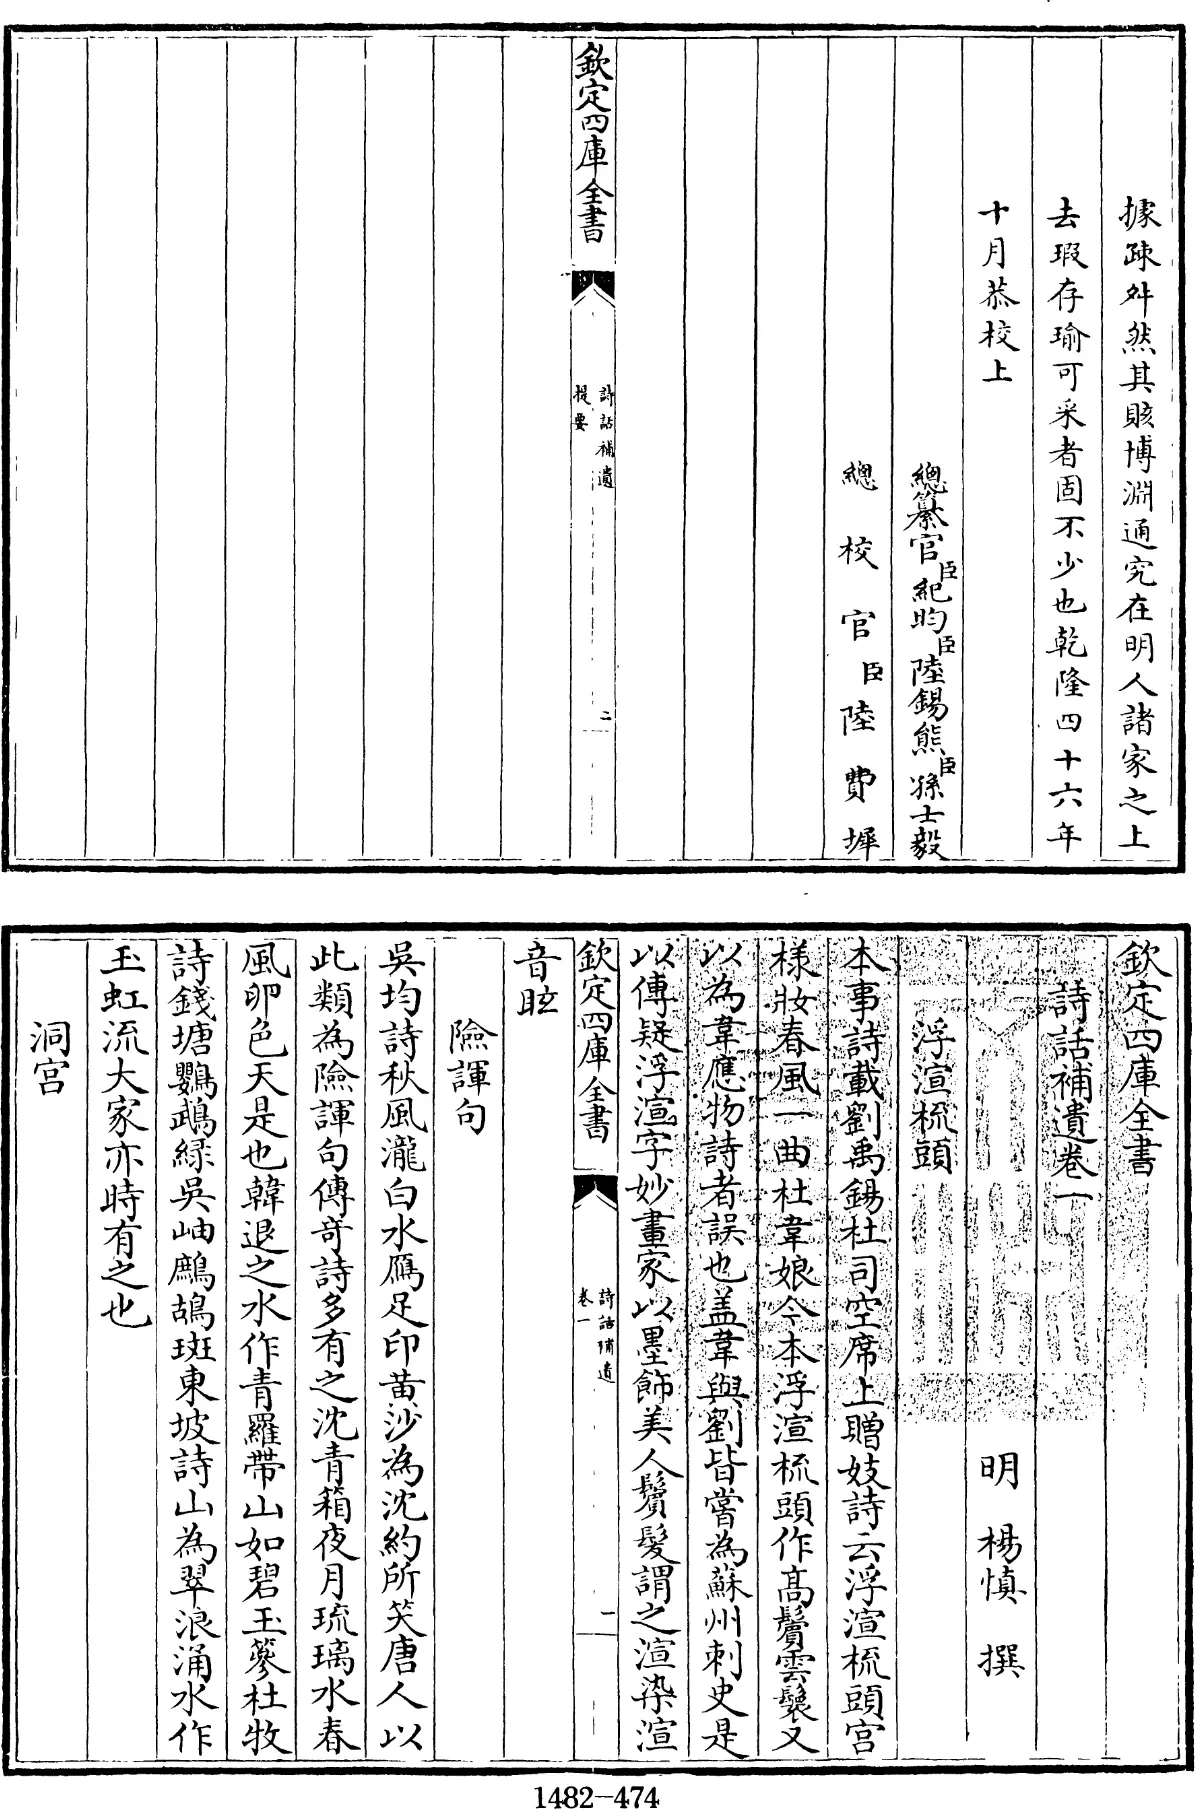 據疎舛然其賅博淵通究在明人諸家之上
去瑕存瑜可采者固不少也乾隆四十六年
十月恭校上
總纂官臣紀昀臣陸錫熊臣孫士毅
總校官臣陸費墀
欽定四庫全書
詩話補遺
提要
二
欽定四庫全書
詩話補遺卷一
明 楊慎 撰
浮渲梳頭
本事詩載劉禹錫杜司空席上贈妓詩云浮渲梳頭宫
様妝春風一曲杜韋娘今本浮渲梳頭作髙鬟雲鬟又
以為韋應物詩者誤也盖韋與劉皆嘗為蘇州刺史是
以傳疑浮渲字妙畫家以墨飾美人鬢髮謂之渲染渲
欽定四庫全書
詩話補遺
卷一
一
音昡
險諢句
吳均詩秋風瀧白水鴈足印黄沙為沈約所笑唐人以
此類為險諢句傳竒詩多有之沈青箱夜月琉璃水春
風卵色天是也韓退之水作青羅帶山如碧玉簪杜牧
詩錢塘鸚鵡緑吳岫鷓鴣斑東坡詩山為翠浪涌水作
玉虹流大家亦時有之也
洞宫
1482-474